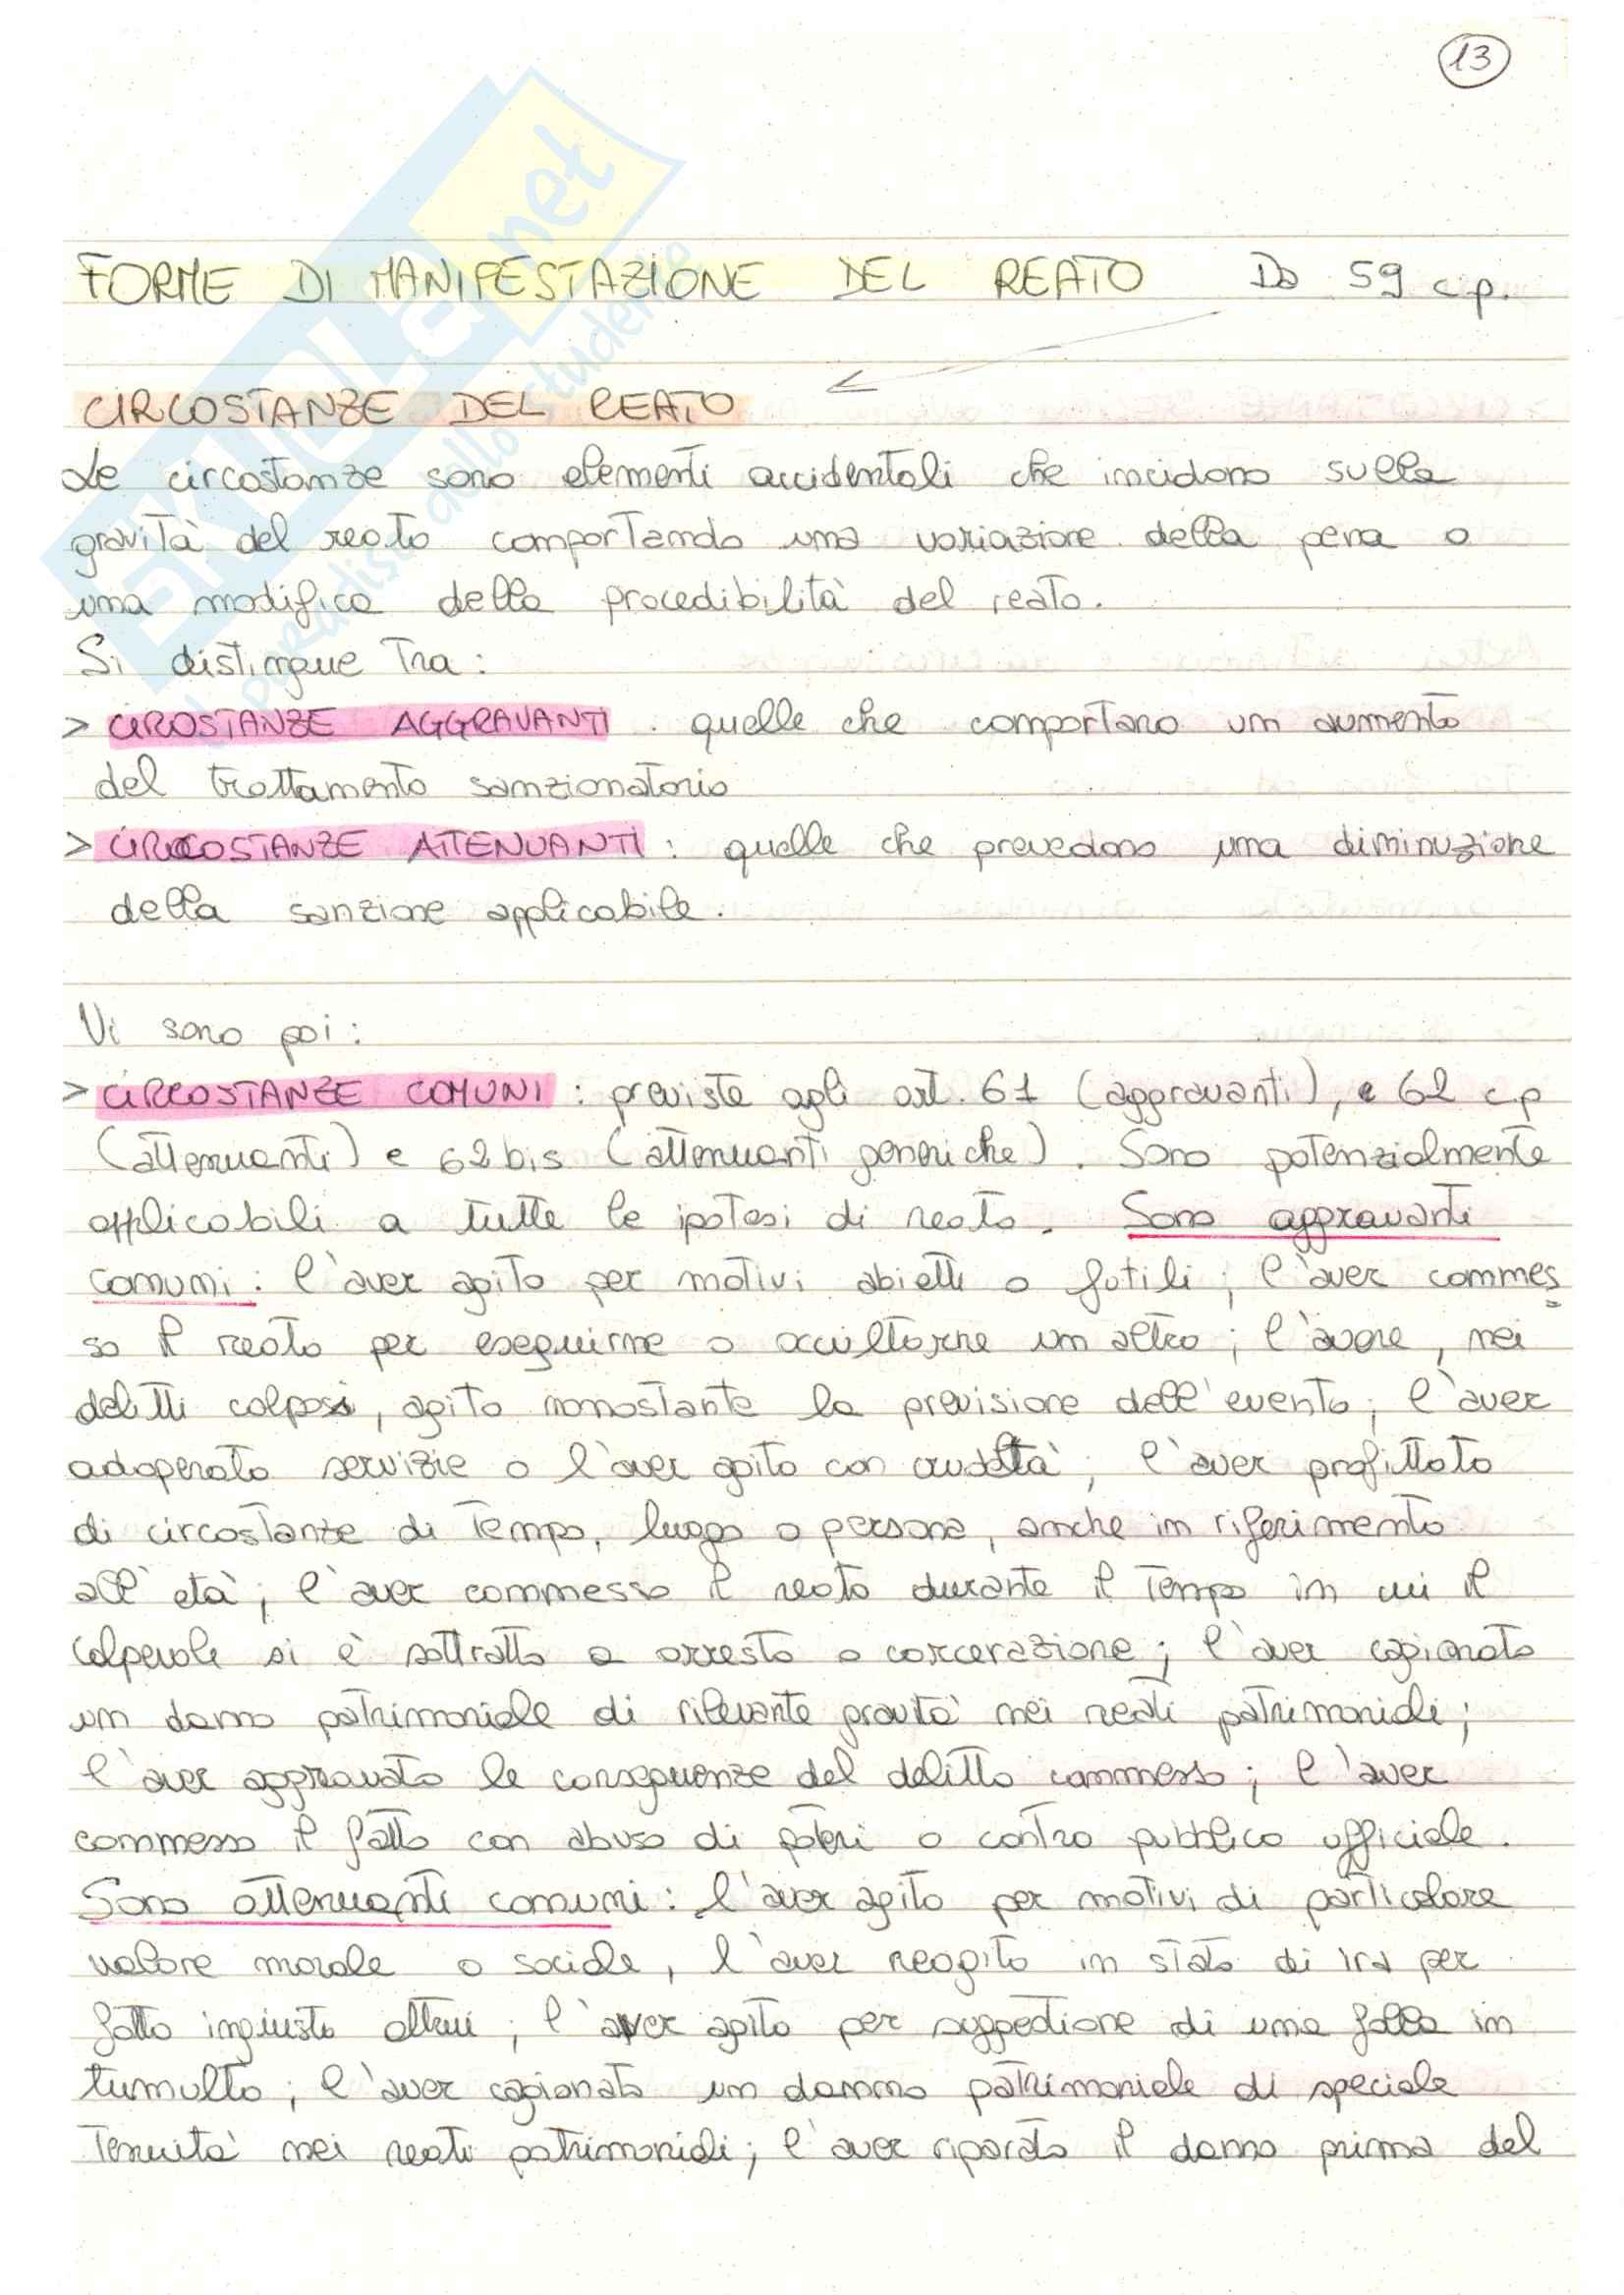 13
FORME DI MANIFESTAZIONE DEL REATO Da 59 c.p.
CIRCOSTANZE DEL REATO
Le circostanze sono elementi accidentali che incidono sulla
gravità del reato comportando una variazione della pena o
una modifica della procedibilità del reato.
Si distingue tra:
> CIRCOSTANZE AGGRAVANTI : quelle che comportano un aumento
del trattamento sanzionatorio
> CIRCOSTANZE ATTENUANTI : quelle che prevedono una diminuzione
della sanzione applicabile.
Vi sono poi :
> CIRCOSTANZE COMUNI : previste agli art. 61 (aggravanti), e 62 c.p
(attenuanti) e 62 bis (attenuanti generiche). Sono potenzialmente
applicabili a tutte le ipotesi di reato. Sono aggravanti
comuni : l'aver agito per motivi abietti o futili ; l'aver commes
so il reato per eseguirne o occultarne un altro ; l'avere, nei
delitti colposi, agito nonostante la previsione dell'evento ; l'aver
adoperato servizie o l'aver agito con crudeltà ; l'aver profittato
di circostanze di tempo, luogo o persona, anche in riferimento
all'età ; l'aver commesso il reato durante il tempo in cui il
colpevole si è sottratto a arresto o carcerazione ; l'aver cagionato
un danno patrimoniale di rilevante gravità nei reati patrimoniali ;
l'aver aggravato le conseguenze del delitto commesso ; l'aver
commesso il fatto con abuso di poteri o contro pubblico ufficiale.
Sono attenuanti comuni : l'aver agito per motivi di particolare
valore morale o sociale, l'aver reagito in stato di ira per
fatto ingiusto altrui ; l'aver agito per suggestione di una folla in
tumulto ; l'aver cagionato un danno patrimoniale di speciale
tenuità nei reati patrimoniali ; l'aver riparato il danno prima del
SKUOLA.net
il paradiso dello studente